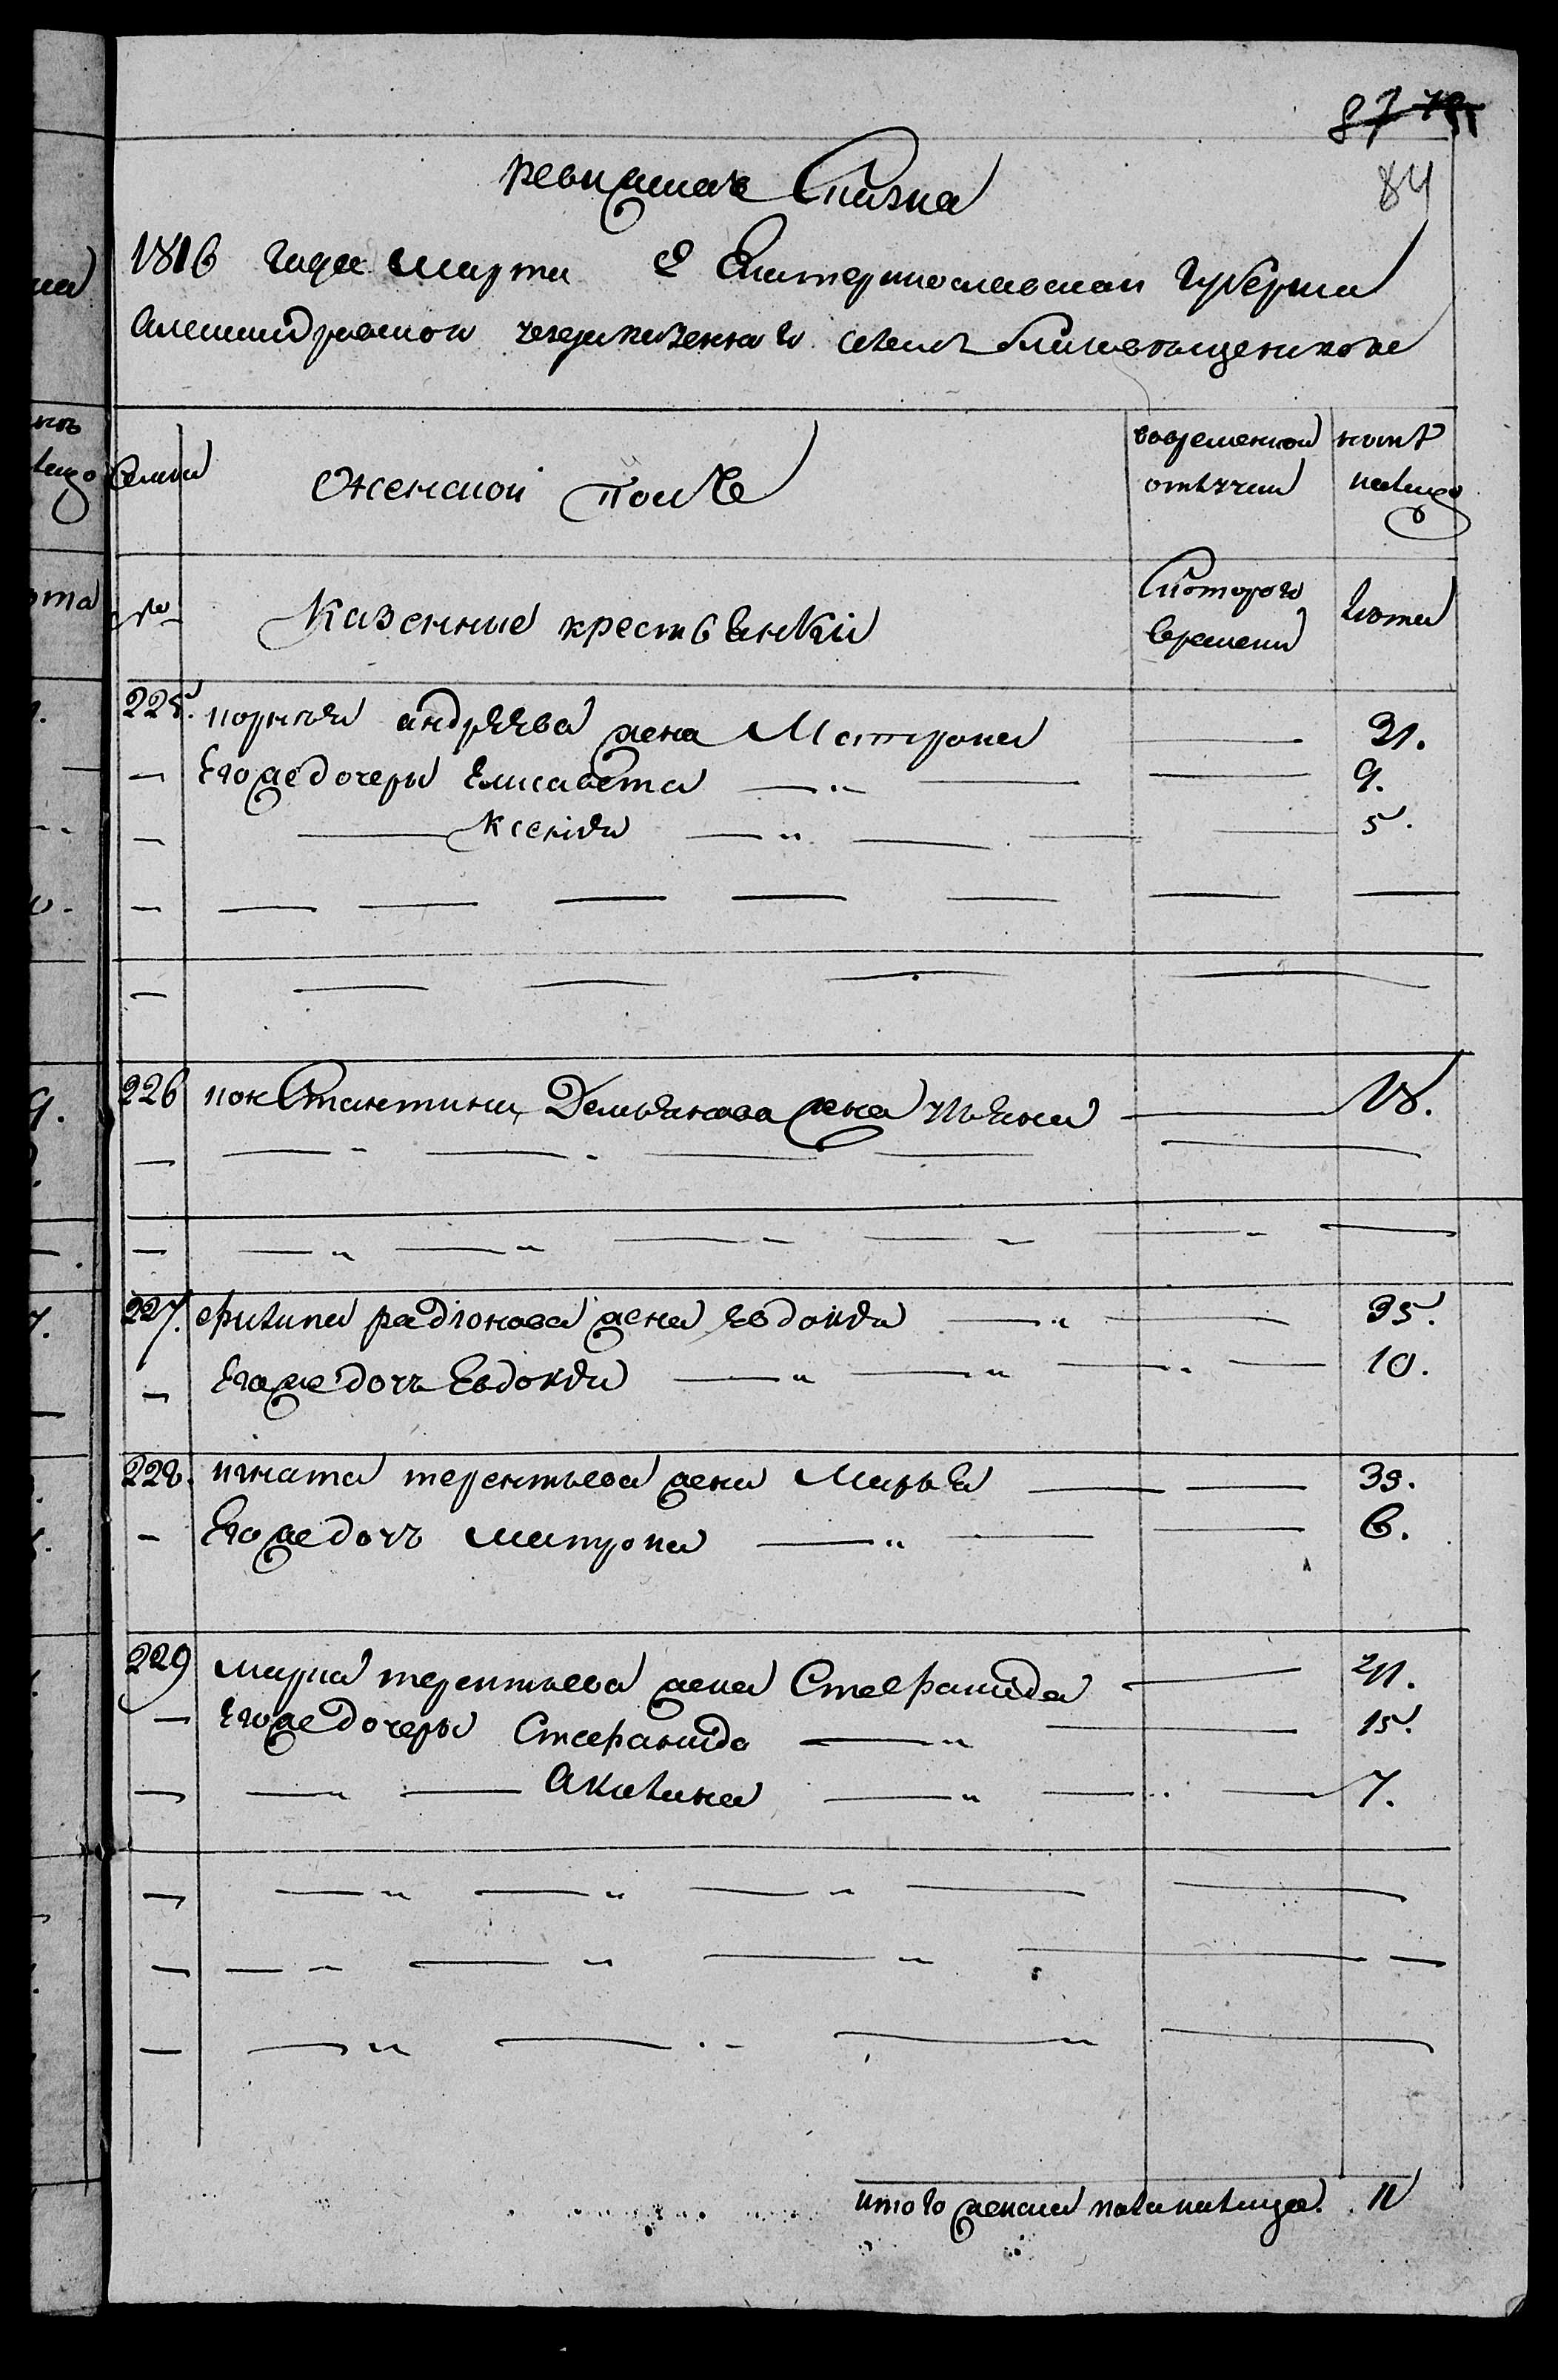 87
84
ревизская Сказка
1816 года марта Екатеринославской Губернии
Александровского уезда казенного селения
Семьи
Женской Полъ
вовременной отлучки
ныне налицо
№
Казенные крестьянки
Скоторого времени
лета
225. корнея андреева жена Матрона 31.
— Егоже дочери Елисавета — 9.
— Ксенія — 5.
226 конСтантина Демьянова жена ульяна 18.
227. филипа радіонова жена Евдокия — 35.
— Егоже дочь Евдокия — 10.
228. игната терентьева жена Марья — 39.
— Егоже дочь матрона — 6.
229 марка терентьева жена Стефанида — 41.
— Егоже дочери Стефанида — 15.
— Акилина — 7.
итого женска пола налицо. 11